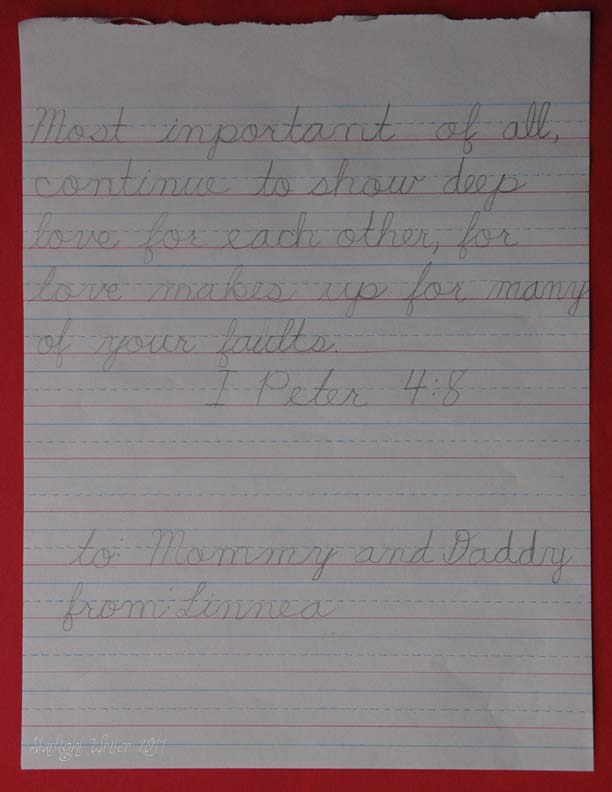 Most inportant of all,
continue to show deep
love for each other, for
love makes up for many
of your faults.
I Peter 4:8
to: Mommy and Daddy
from: Linnea
Starlight Writer 2011